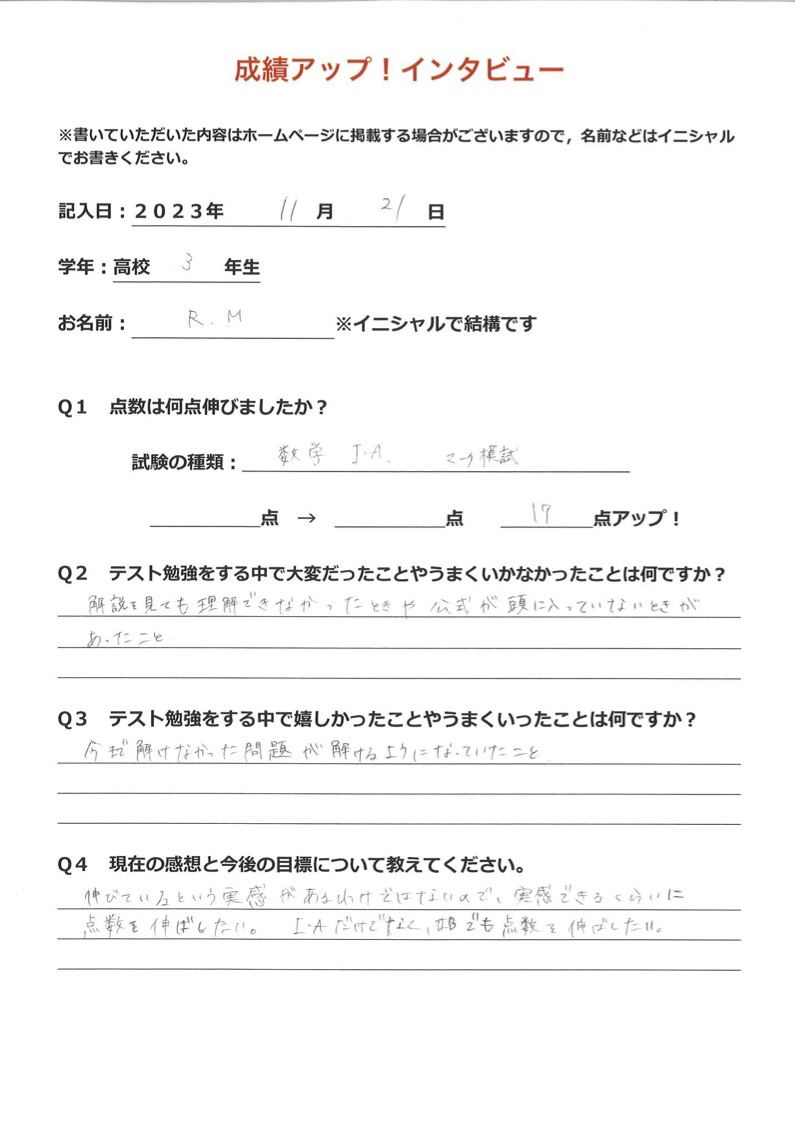 成績アップ！インタビュー
※書いていただいた内容はホームページに掲載する場合がございますので，名前などはイニシャル
でお書きください。
記入日：２０２３年　11　月　21　日
学年：高校　3　年生
お名前：　R.M　※イニシャルで結構です
Ｑ１　点数は何点伸びましたか？
試験の種類：　数学　I・A.　マーク模試
点　→　点　17　点アップ！
Ｑ２　テスト勉強をする中で大変だったことやうまくいかなかったことは何ですか？
解説を見ても理解できなかったときや 公式が頭に入っていないときが
あったこと
Ｑ３　テスト勉強をする中で嬉しかったことやうまくいったことは何ですか？
今まで解けなかった問題が解けるようになっていたこと
Ｑ４　現在の感想と今後の目標について教えてください。
伸びているという実感があるわけではないので、実感できるくらいに
点数を伸ばしたい。　I・Aだけでなく、ⅡBでも点数を伸ばしたい。